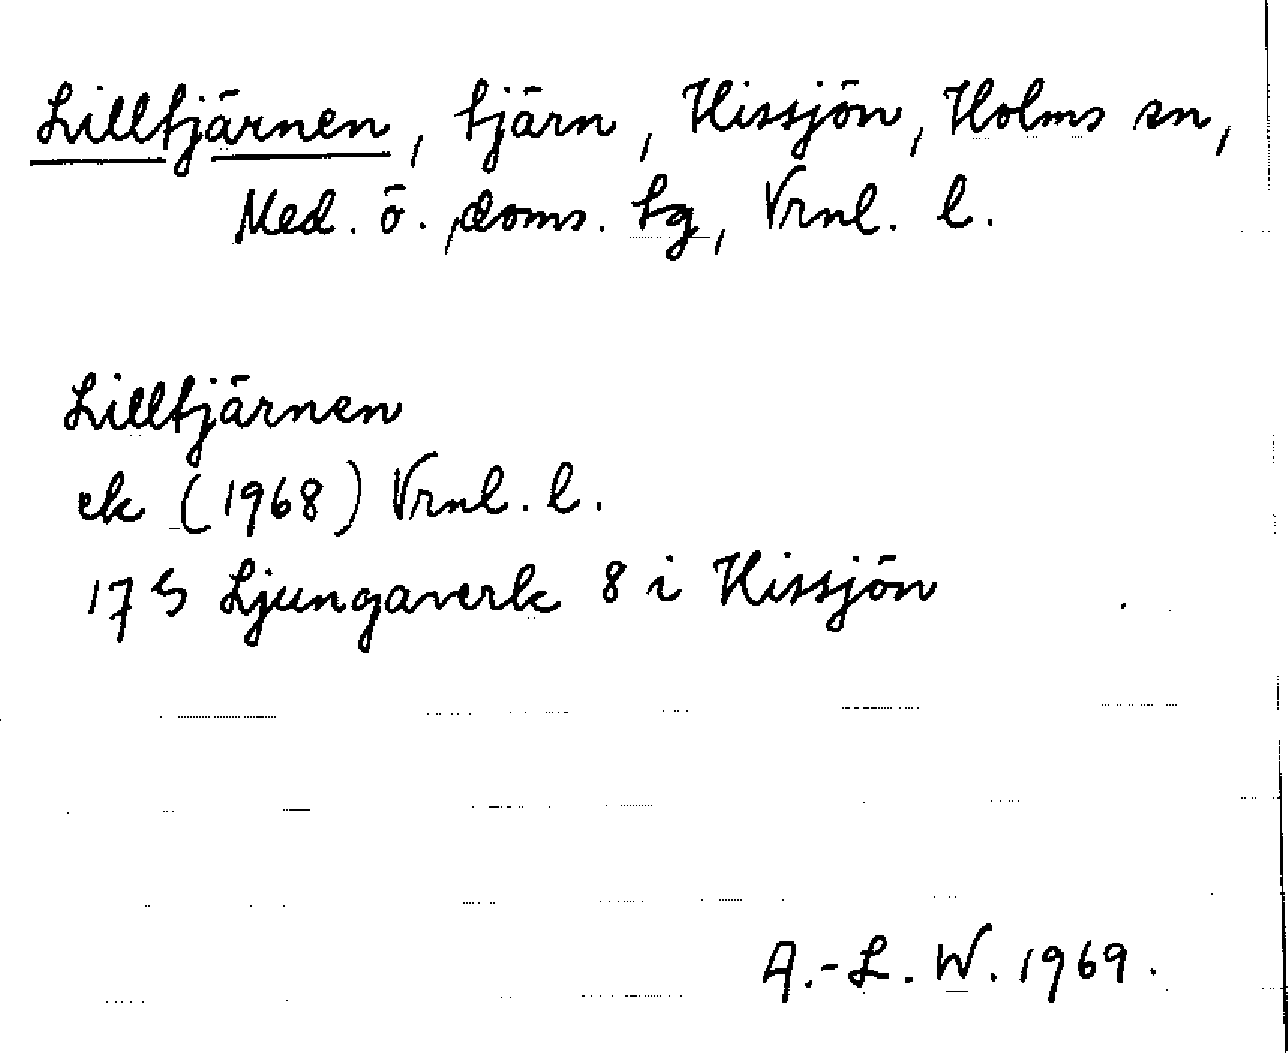 Lilltjärnen, tjärn, Hissjön, Holms sn,
Med. ö. doms. tg, Vrnl. l.
Lilltjärnen
ek (1968) Vrnl. l.
17 S Ljungaverk 8 i Hissjön
A.-L. W. 1969.